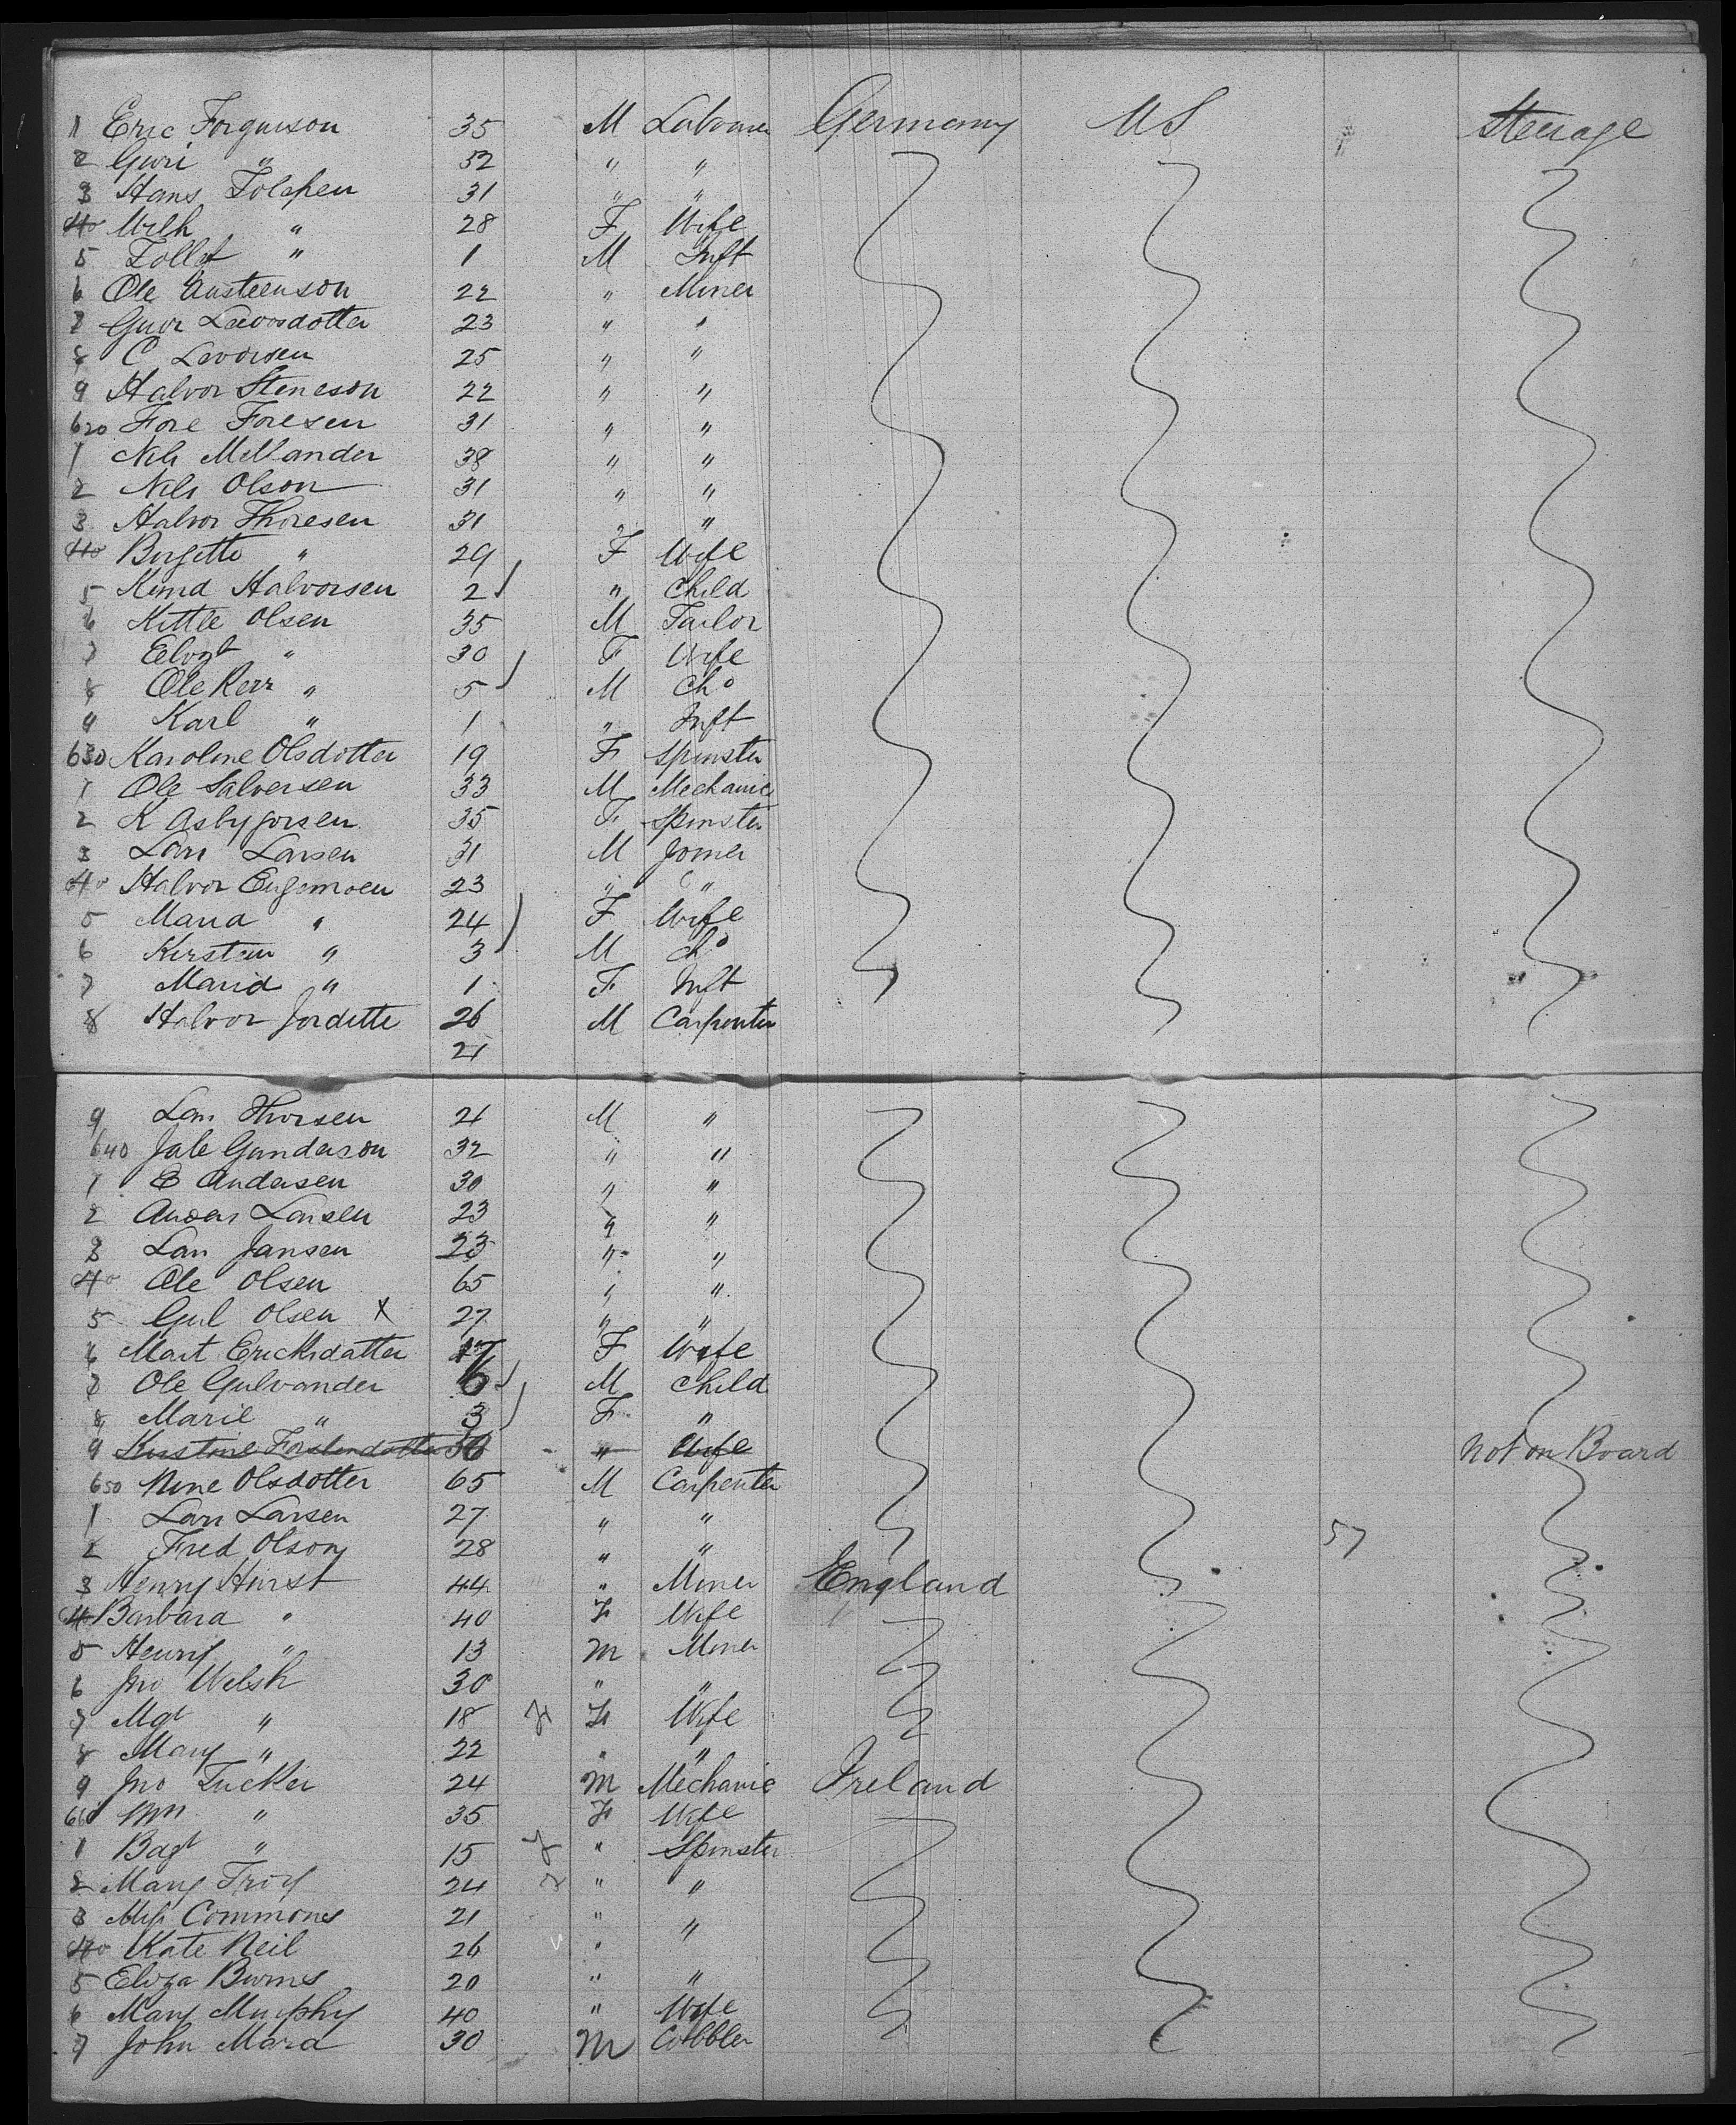 1 Eric Forguison 35 M Labourer Germany US Steerage
2 Guri " 32 " "
3 Hans Tolefsen 31 " "
4 " 28 F Wife
5 Tollef " 1 M Inft
6 Ole Austeenson 22 " Miner
7 Guor Leevosdotter 23 " "
8 C Levorsen 25 " "
9 Halvor Steneson 22 " "
620 Fore Foresen 31 " "
1 Nels Mellander 38 " "
2 Nels Olson 31 " "
3 Halvor Thoresen 31 " "
4 Birgette " 29 F Wife
5 Knud Halvorsen 2 " Child
6 Kittle Olsen 35 M Tailor
7 " 30 F Wife
8 Ole Kerr " 5 M Cho
9 Karl " 1 " Inft
630 Karoline Olsdotter 19 F Spinster
1 Ole Salversen 33 M Mechanic
2 K Asbyjorsen 35 F Spinster
3 Lars Larsen 31 M Joiner
4 Halvor Engemoen 23 " "
5 Maria " 24 F Wife
6 Kerstein " 3 M Cho
7 Marid " 1 F Inft
8 Halvor Jordette 26 M Carpenter
21
9 Lars Thorsen 21 M "
640 Jale Gunderson 32 " "
1 E Andersen 30 " "
2 Anders Larsen 23 " "
3 Lars Jansen 23 " "
4 Ole Olsen 65 " "
5 Gul Olsen X 27 " "
6 Mart Ericksdatter F Wife
7 Ole Gulvander 6 M Child
8 Marie " 3 F "
9 Kirstine 30 " Wife Not on Board
650 Nine Olsdotter 65 M Carpenter
1 Lars Larsen 27 " "
2 Fred Olson 28 " " 57
3 Henry Hurst 44 " Miner England
4 Barbara " 40 F Wife
5 Henry " 13 M Miner
6 Jno Welsh 30 " "
7 Mgt " 18 F Wife
8 Mary " 22 " "
9 Jno Tucker 24 M Mechanic Ireland
660 " 35 F Wife
1 Bagt " 15 " Spinster
2 Mary Troy 24 " "
3 Miss Commones 21 " "
4 Kate Neil 26 "
5 Eliza Burns 20 " "
6 Mary Murphy 40 " Wife
7 John Mara 30 M Cobbler